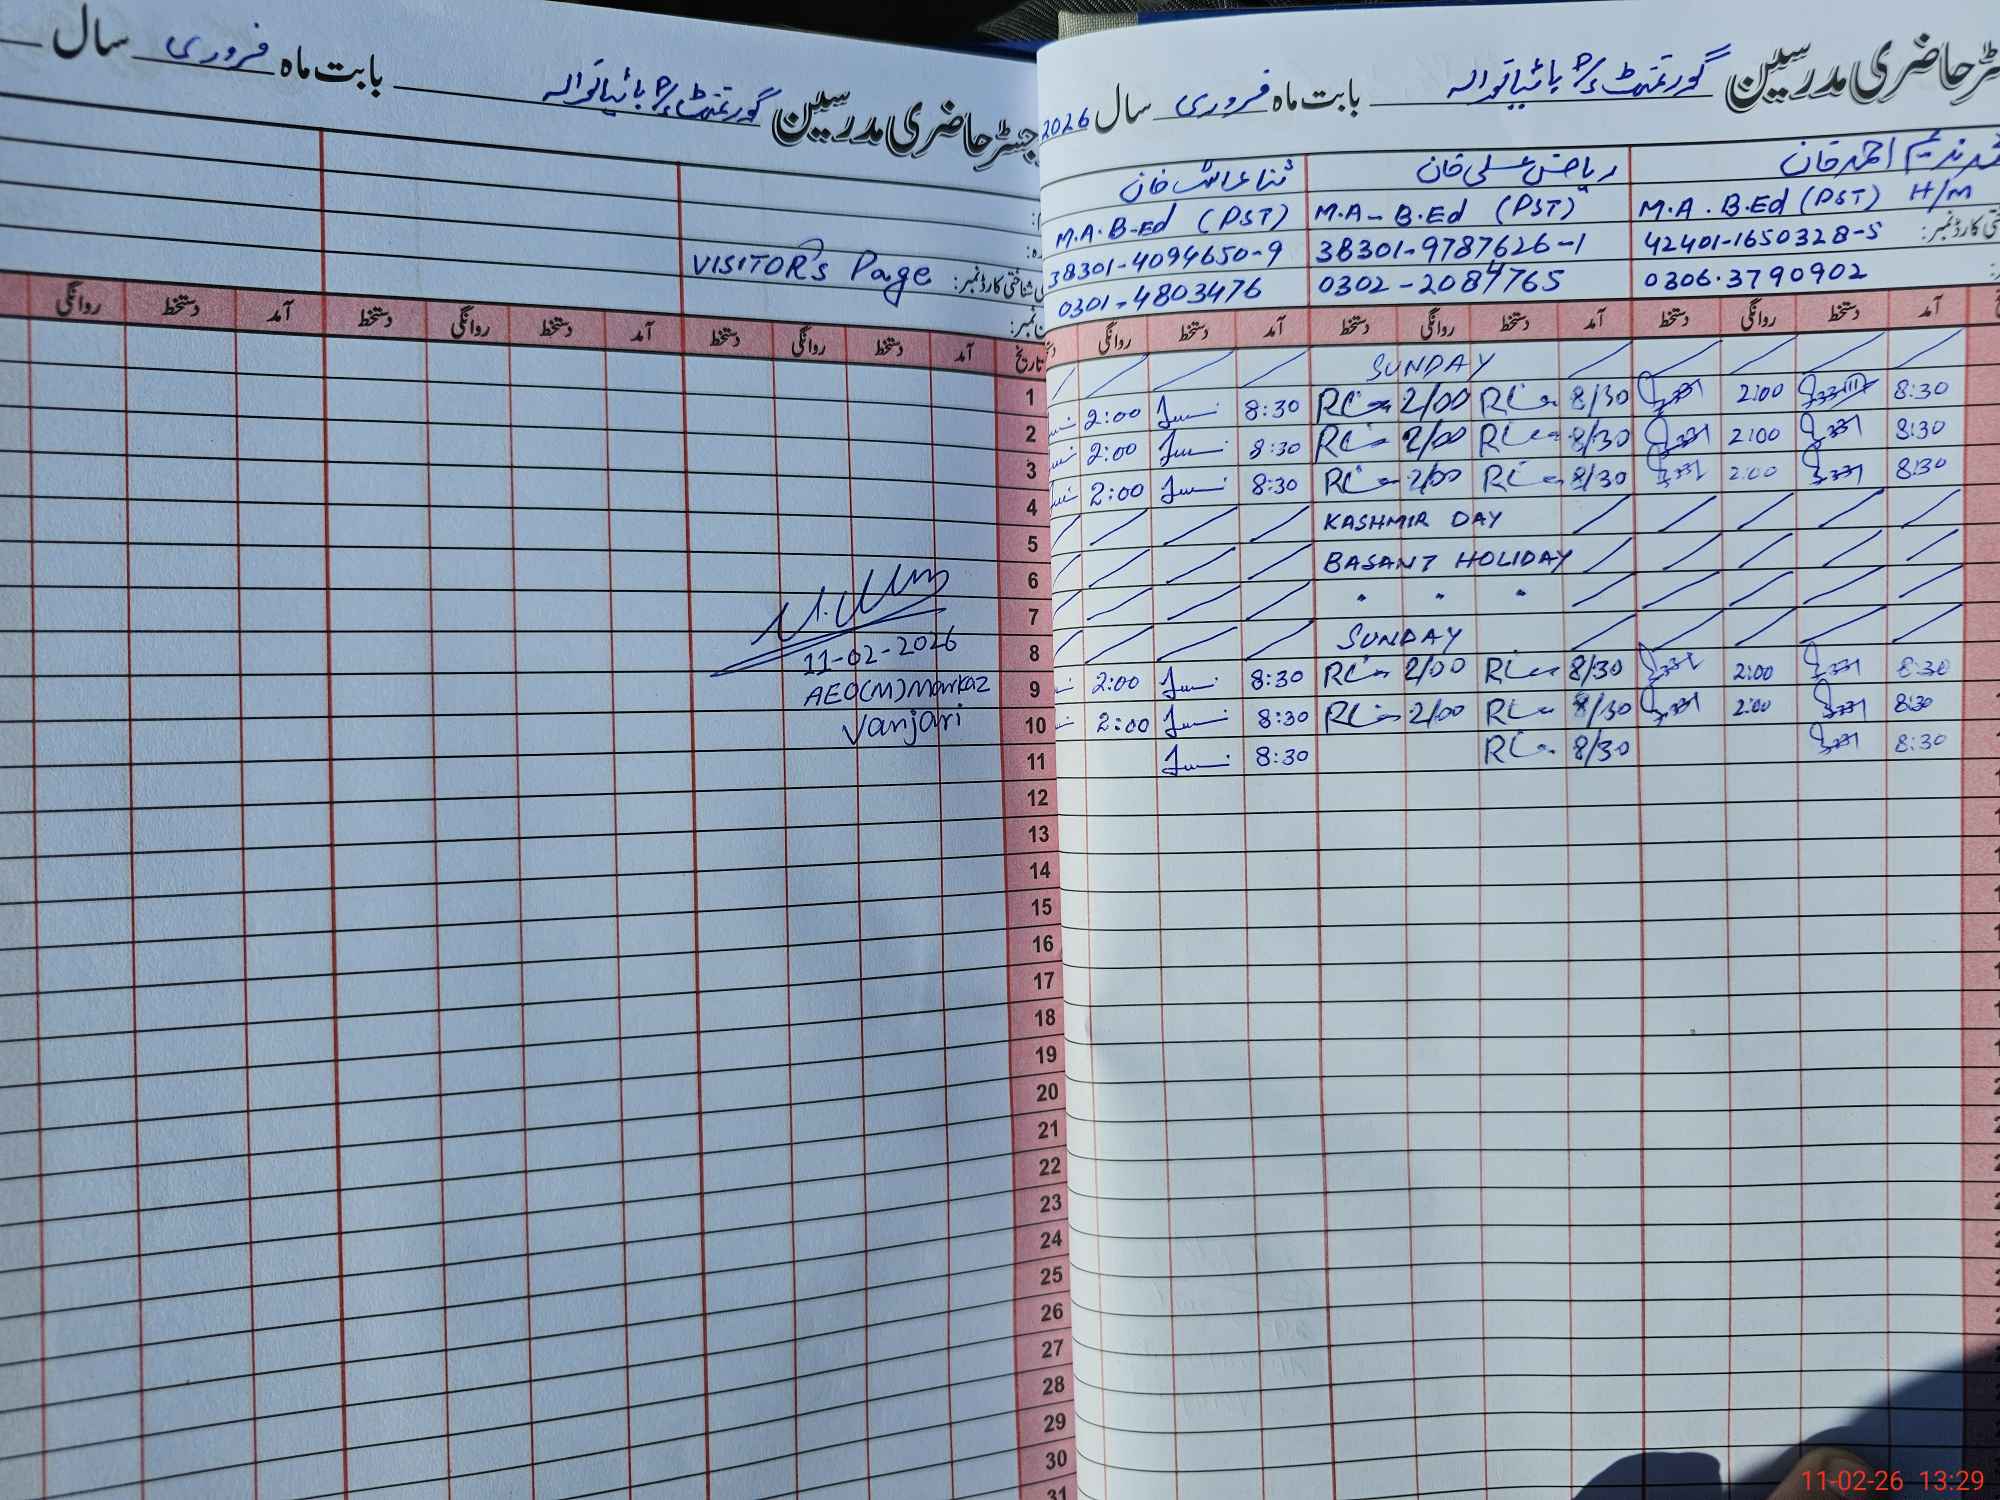 رجسٹر حاضری مدرسین گورنمنٹ P/S بابت ماہ فروری سال
VISITOR's Page
شناختی کارڈ نمبر:
تاریخ آمد دستخط روانگی دستخط آمد دستخط روانگی دستخط آمد دستخط روانگی
1
2
3
4
5
6
7
8
9
10
11
12
13
14
15
16
17
18
19
20
21
22
23
24
25
26
27
28
29
30
31
11-02-2026
AEO(M) Markaz
Vanjari
حاضری مدرسین گورنمنٹ P/S بابت ماہ فروری سال 2026
ندیم احمد خان ریاض علی خان ثنا خان
M.A. B.Ed (PST) H/M M.A - B.Ed (PST) M.A. B.Ed (PST)
42401-1650328-5 38301-9787626-1 38301-4094650-9
0306.3790902 0302-2084765 0301-4803476
آمد دستخط روانگی دستخط آمد دستخط روانگی دستخط آمد دستخط روانگی
SUNDAY
8:30 2:00 8/30 2/00 8:30 2:00
8:30 2:00 8/30 2/00 8:30 2:00
8:30 2:00 8/30 2/00 8:30 2:00
KASHMIR DAY
BASANT HOLIDAY
" " "
SUNDAY
8:30 2:00 8/30 2/00 8:30 2:00
8:30 2:00 8/30 2/00 8:30 2:00
8:30 8/30 8:30
11-02-26 13:29